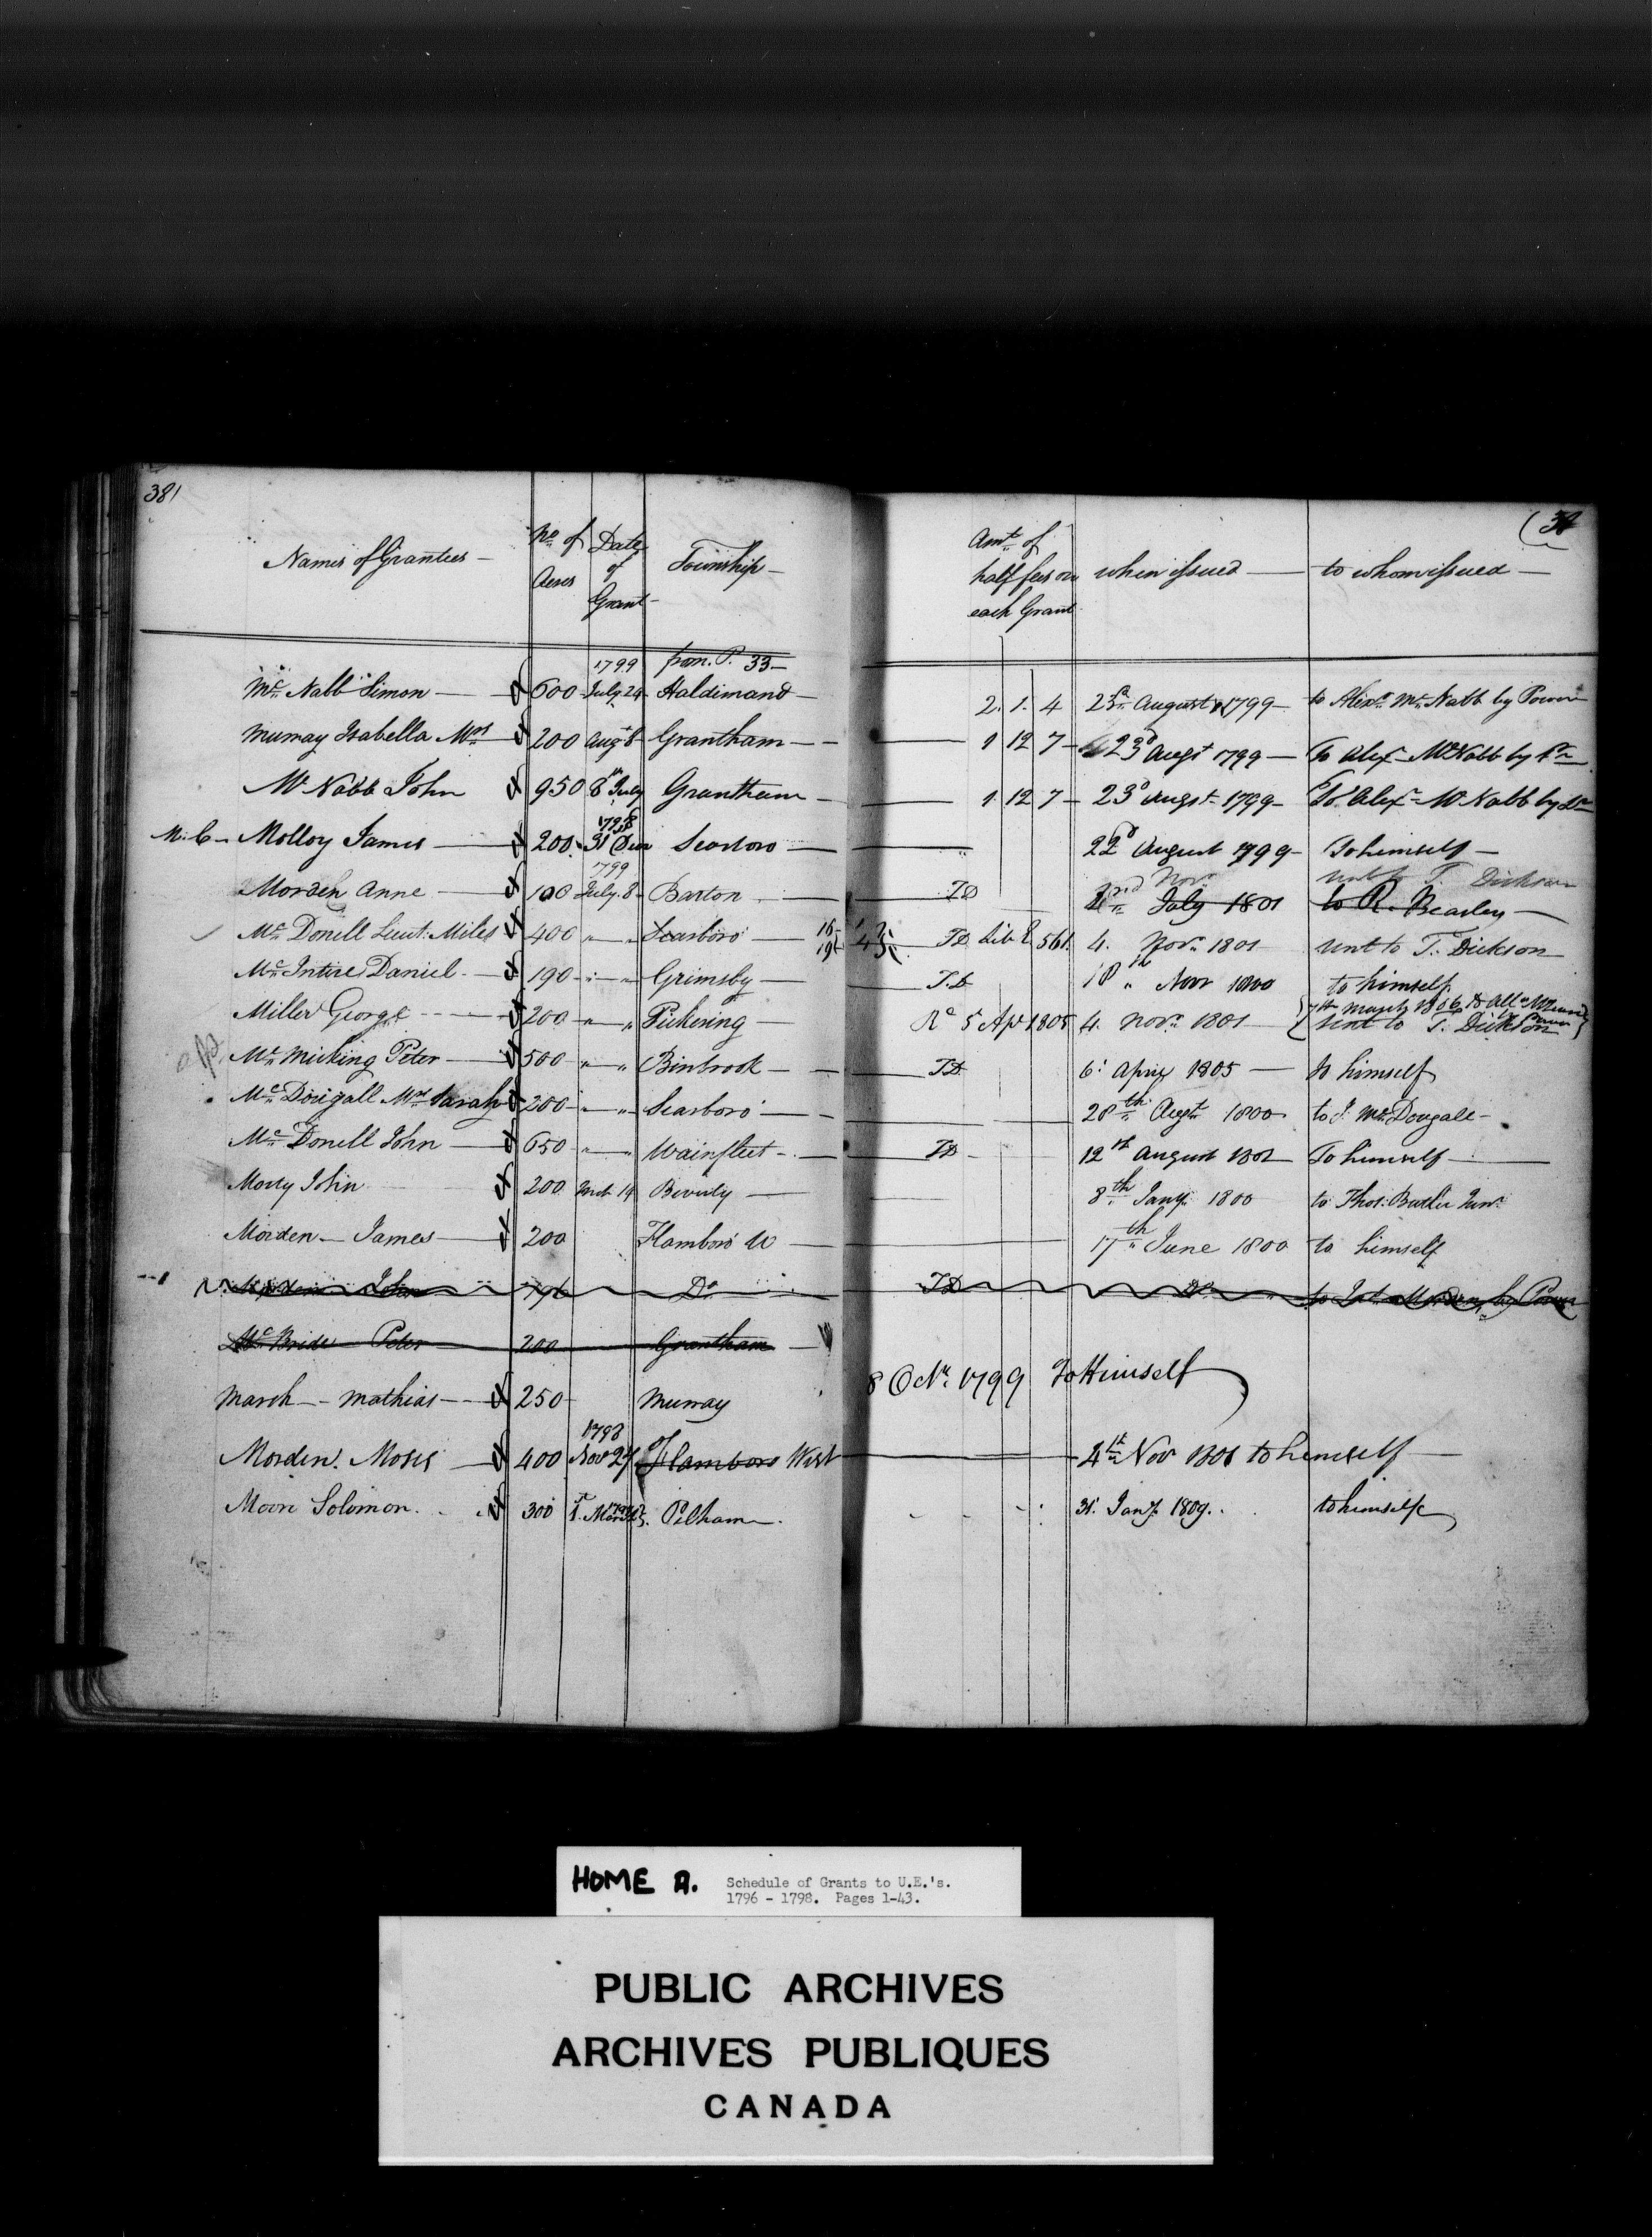 381
(34
Names of Grantees — No. of Acres Date of Grant Township — Amt. of half fees on each Grant when issued — to whom issued —
1799 from P. 33 —
Mc Nabb Simon — 600 July 24 Haldimand — 2. 1. 4 23d August 1799 — to Alexr. Mc Nabb by Power
Murray Isabella Mrs 200 Augt 8 Grantham — 1 12 7 — 23d Augt 1799 — To Alexr Mc Nabb by Pr
Mc Nabb John 950 8th July Grantham — 1 12 7 — 23d Augst 1799 — To Alexr Mc Nabb by
1798
M. C — Molloy James — 200 31 Decr Scarboro — 22d August 1799 — To himself —
1799 Novr
Morden Anne — 100 July 8 Barton — TD July 1801 to R. Beasley —
Mc Donell Lieut. Miles 400 " — " Scarboro — TD Lib E 561. 4. Novr. 1801 sent to T. Dickson
Mc Intire Daniel — 190 " — " Grimsby — T.D 18th " Novr 1800 to himself
7th March 1806 to
Miller George — 200 " — " Pickering — Rd 5 Apr 1805 4. Novr. 1801 sent to T. Dickson
Mc Micking Peter — 500 " — " Binbrook — TD 6: April 1805 — to himself
Mc Dougall Mrs Sarah 200 " — " Scarboro — 28th Augt 1800 to J. Mc Dougall —
Mc Donell John — 650 " — " Wainfleet — TD — 12th August 1801 — To himself —
Morty John 200 19 Beverly — 8th Jany. 1800 to Thos. Butler Junr.
Morden — James — 200 Flamboro W — 17th June 1800 to himself
Morden John Do TD Do to Morden by Power
Mc Bride Peter 200 Grantham —
March — Mathias — 250 Murray 8 Octr. 1799 To Himself
1798
Morden. Moses 400 Nov 27 Flamboro West — 4th Nov 1801 to himself —
Moore Solomon 300 1st March Pelham. 31. Jany. 1809. to himself
HOME A. Schedule of Grants to U.E.'s.
1796 - 1798. Pages 1-43.
PUBLIC ARCHIVES
ARCHIVES PUBLIQUES
CANADA